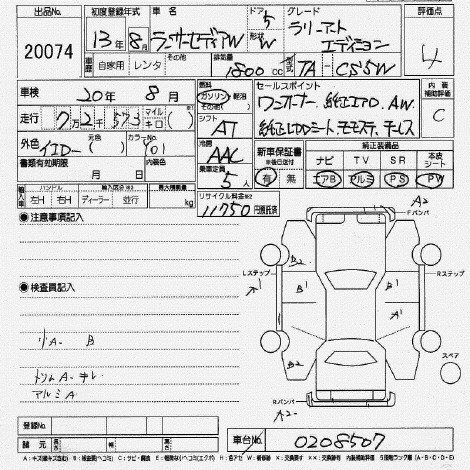 出品No. 初度登録年式 車名 ドア グレード 評価点
20074 13年 8月 ランサーセディアW 5 形状 W ラリーアート エディション 4
車歴 自家用 レンタ その他 排気量 1800cc 型式 TA-CS5W
車検 20年 8月 燃料 ガソリン 軽油 その他( ) セールスポイント 内装補助評価 C
走行 7万2千573 マイル キロ ( ) ワンオーナー 純正エアロ AW
シフト AT
外色 イエロー 元色 ( ) カラーNo. Y01 内装色
冷房 AAC 新車保証書 ※後日送付 有 無 純正装備品
書類有効期限 月 日 乗車定員 5人 ナビ TV SR 本皮シート
エアB アルミ PS PW
輸入車 ハンドル 左H 右H 輸入区分※2 ディーラー 並行 最大積載量 kg リサイクル料金※2 11750円預託済
◉注意事項記入
A2 Fバンパ
Lステップ Rステップ
B2
A1 B1 B1
A1
◉検査員記入
リA- B
B2
トリムA-キレ スペア
アルミA
Rバンパ
A2-
登録No.
諸元 長さ 幅 高さ 車台No. 0208507